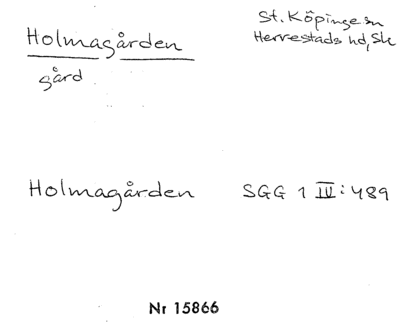 Holmagården
gård
St. Köpinge sn
Herrestads hd, Sk
Holmagården SGG 1 IV:489
Nr 15866